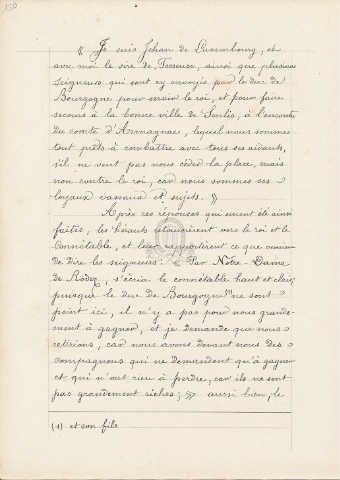 150
« Je suis Jehan de Luxembourg, et
avec moi le sire de Fosseuse, ainsi que plusieurs
seigneurs qui sont cy envoyés par le duc de
Bourgogne pour servir le roi, et pour faire
secours à la bonne ville de Senlis, à l'encontre
du comte d'Armagnac, lequel nous sommes
tout prêts à combattre avec tous ses aidants,
s'il ne veut pas nous céder la place, mais
non contre le roi, car nous sommes ses
loyaux vassaux et sujets. »
Après ces réponses qui eurent été ainsi
faites, les hérauts retournèrent vers le roi et le
connétable, et leur rapportèrent ce que venaient
de dire les seigneurs : « Par Notre-Dame
de Rodez, s'écria le connétable haut et clair,
puisque le duc de Bourgogne (1) ne sont
point ici, il n'y a pas pour nous grande-
ment à gagner, et je demande que nous
retirions, car nous avons devant nous des
compagnons qui ne demandent qu'à gagner
et qui n'ont rien à perdre, car ils ne sont
pas grandement riches ; » aussi bien, le
(1) et son fils